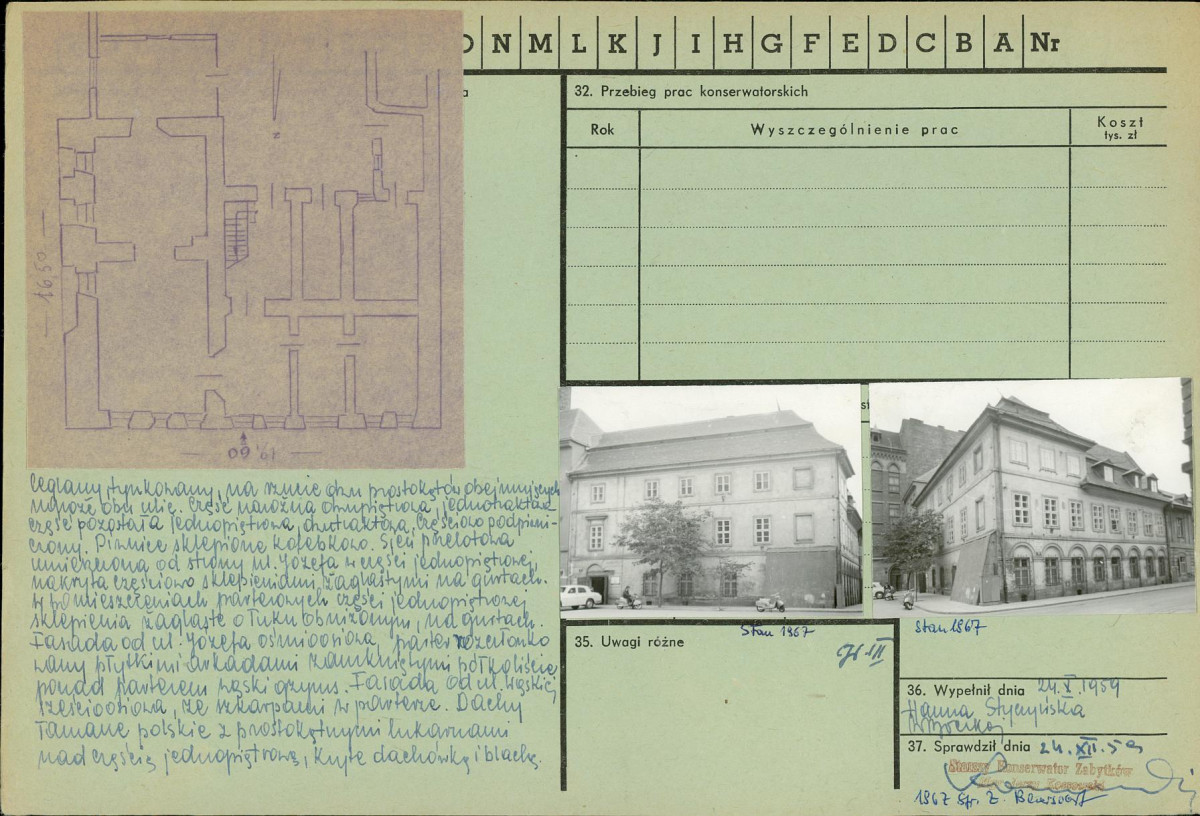 N M L K J I H G F E D C B A Nr
32. Przebieg prac konserwatorskich
Rok
Wyszczególnienie prac
Koszt
tys. zł
16,50
N
Ceglany, tynkowany, na rzucie dwu prostokątów obejmujących
naroże obu ulic. Część narożna dwupiętrowa, jednotraktowa
część pozostała jednopiętrowa, dwutraktowa, częściowo podpiwni-
czony. Piwnice sklepione kolebkowo. Sień przelotowa
umieszczona od strony ul. Józefa w części jednopiętrowej,
nakryta częściowo sklepieniami żaglastymi na gurtach.
W pomieszczeniach parterowych części jednopiętrowej
sklepienia żaglaste o łuku obniżonym, na gurtach.
Fasada od ul. Józefa ośmioosiowa, parter rozczłonko
wany płytkimi arkadami zamkniętymi półkoliście,
ponad parterem wąski gzyms. Fasada od ul. Wąskiej
sześcioosiowa, ze szkarpami w parterze. Dachy
łamane polskie z prostokątnymi lukarnami
nad częścią jednopiętrową, kryte dachówką i blachą.
Stan 1967
Stan 1967
35. Uwagi różne
36. Wypełnił dnia 24.X.1959
Hanna Styczyńska
37. Sprawdził dnia 24.XII.59
Starszy Konserwator Zabytków
1967 Spr. Z.